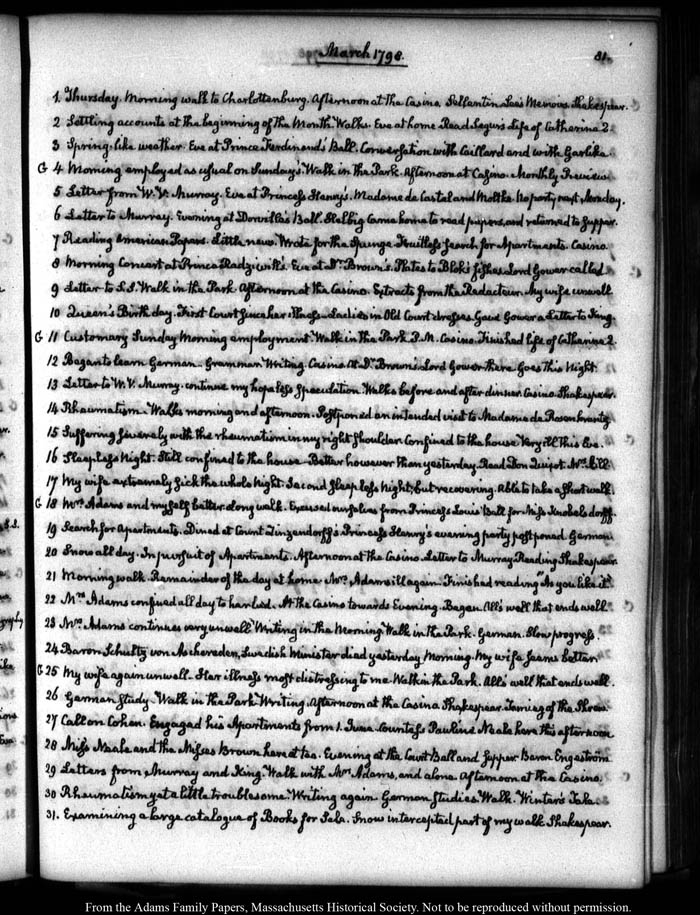 March 1798.
81.
1. Thursday. Morning walk to Charlottenburg. Afternoon at the Casino. Memoirs. Shakespear.
2 Settling accounts at the beginning of the Month. Walks. Eve at home Read Segur's Life of Catherine 2.
3 Spring-like weather. Eve at Prince Ferdinand's Ball. Conversation with Caillard and with Garlike.
G 4 Morning employed as usual on Sunday's. Walk in the Park. Afternoon at Casino. Monthly Review
5 Letter from W. V. Murray. Eve at Princess Henry's. Madame de Castel and Moltke. No party next Monday.
6 Letter to Murray. Evening at Dorville's Ball. came home to read papers, and returned to Supper.
7 Reading American Papers. Little new. Wrote for the Fruitless search for Apartments. Casino.
8 Morning Concert at Prince Radziwill's. Eve at Dr. Brown's. Plates to Blok's fishes Lord Gower called
9 Letter to S.S. Walk in the Park. Afternoon at the Casino. Extracts from the Redacteur. My wife unwell
10 Queen's Birth day. First Court since her illness. Ladies in Old Court dresses. Gave Gower a Letter to King.
G 11 Customary Sunday Morning employment. Walk in the Park. P.M. Casino. Finished life of Catherine 2.
12 Began to learn German. Grammar. Writing. Casino. At Dr. Brown's. Lord Gower there. Goes this Night.
13 Letter to W. V. Murray. continue my hopeless speculation. Walks before and after dinner. Casino. Shakespear.
14 Rheumatism. Walks morning and afternoon. Postponed an intended visit to Madame de Rosenkrantz
15 Suffering severely with the rheumatism in my right shoulder. Confined to the house. Very ill this Eve.
16 Sleepless Night. Still confined to the house. Better however than yesterday. Read Don Quixot. Mrs. A. ill.
17 My wife extremely sick the whole Night. Second sleepless Night, but recovering. Able to take a short walk.
G 18 Mrs. Adams and myself better. along walk. Excused ourselves from Princess Louis' Ball for Miss Knobelsdorff.
19 Search for Apartments. Dined at Count Zinzendorff's Princess Henry's evening party postponed. German.
20 Snow all day. In pursuit of Apartments. Afternoon at the Casino. Letter to Murray. Reading Shakespear
21 Morning walk. Remainder of the day at home Mrs. Adams ill again. Finished reading "As you like it."
22 Mrs. Adams confined all day to her bed. At the Casino towards Evening. Began. All's well that ends well.
23 Mrs. Adams continues very unwell. Writing in the Morning. Walk in the Park. German. Slow progress.
24 Baron Schultz von Aschereden, Swedish Minister died yesterday Morning. My wife seems better.
G 25 My wife again unwell. Her illness most distressing to me. Walk in the Park. All's well that ends well.
26 German Study. Walk in the Park. Writing. Afternoon at the Casino. Shakespear. Taming of the Shrew
27 Call on Cohen. Engaged his Apartments from 1. June. Countess Pauline Neale here this afternoon
28 Miss Neale and the Misses Brown here at tea. Evening at the Court Ball and Supper. Baron Engeström
29 Letters from Murray and King. Walk with Mrs. Adams, and alone. Afternoon at the Casino.
30 Rheumatism yet a little troublesome. Writing again. German Studies. Walk. Winter's Tale.
31. Examining a large catalogue of Books for Sale. Snow intercepted part of my walk. Shakespear.
From the Adams Family Papers, Massachusetts Historical Society. Not to be reproduced without permission.